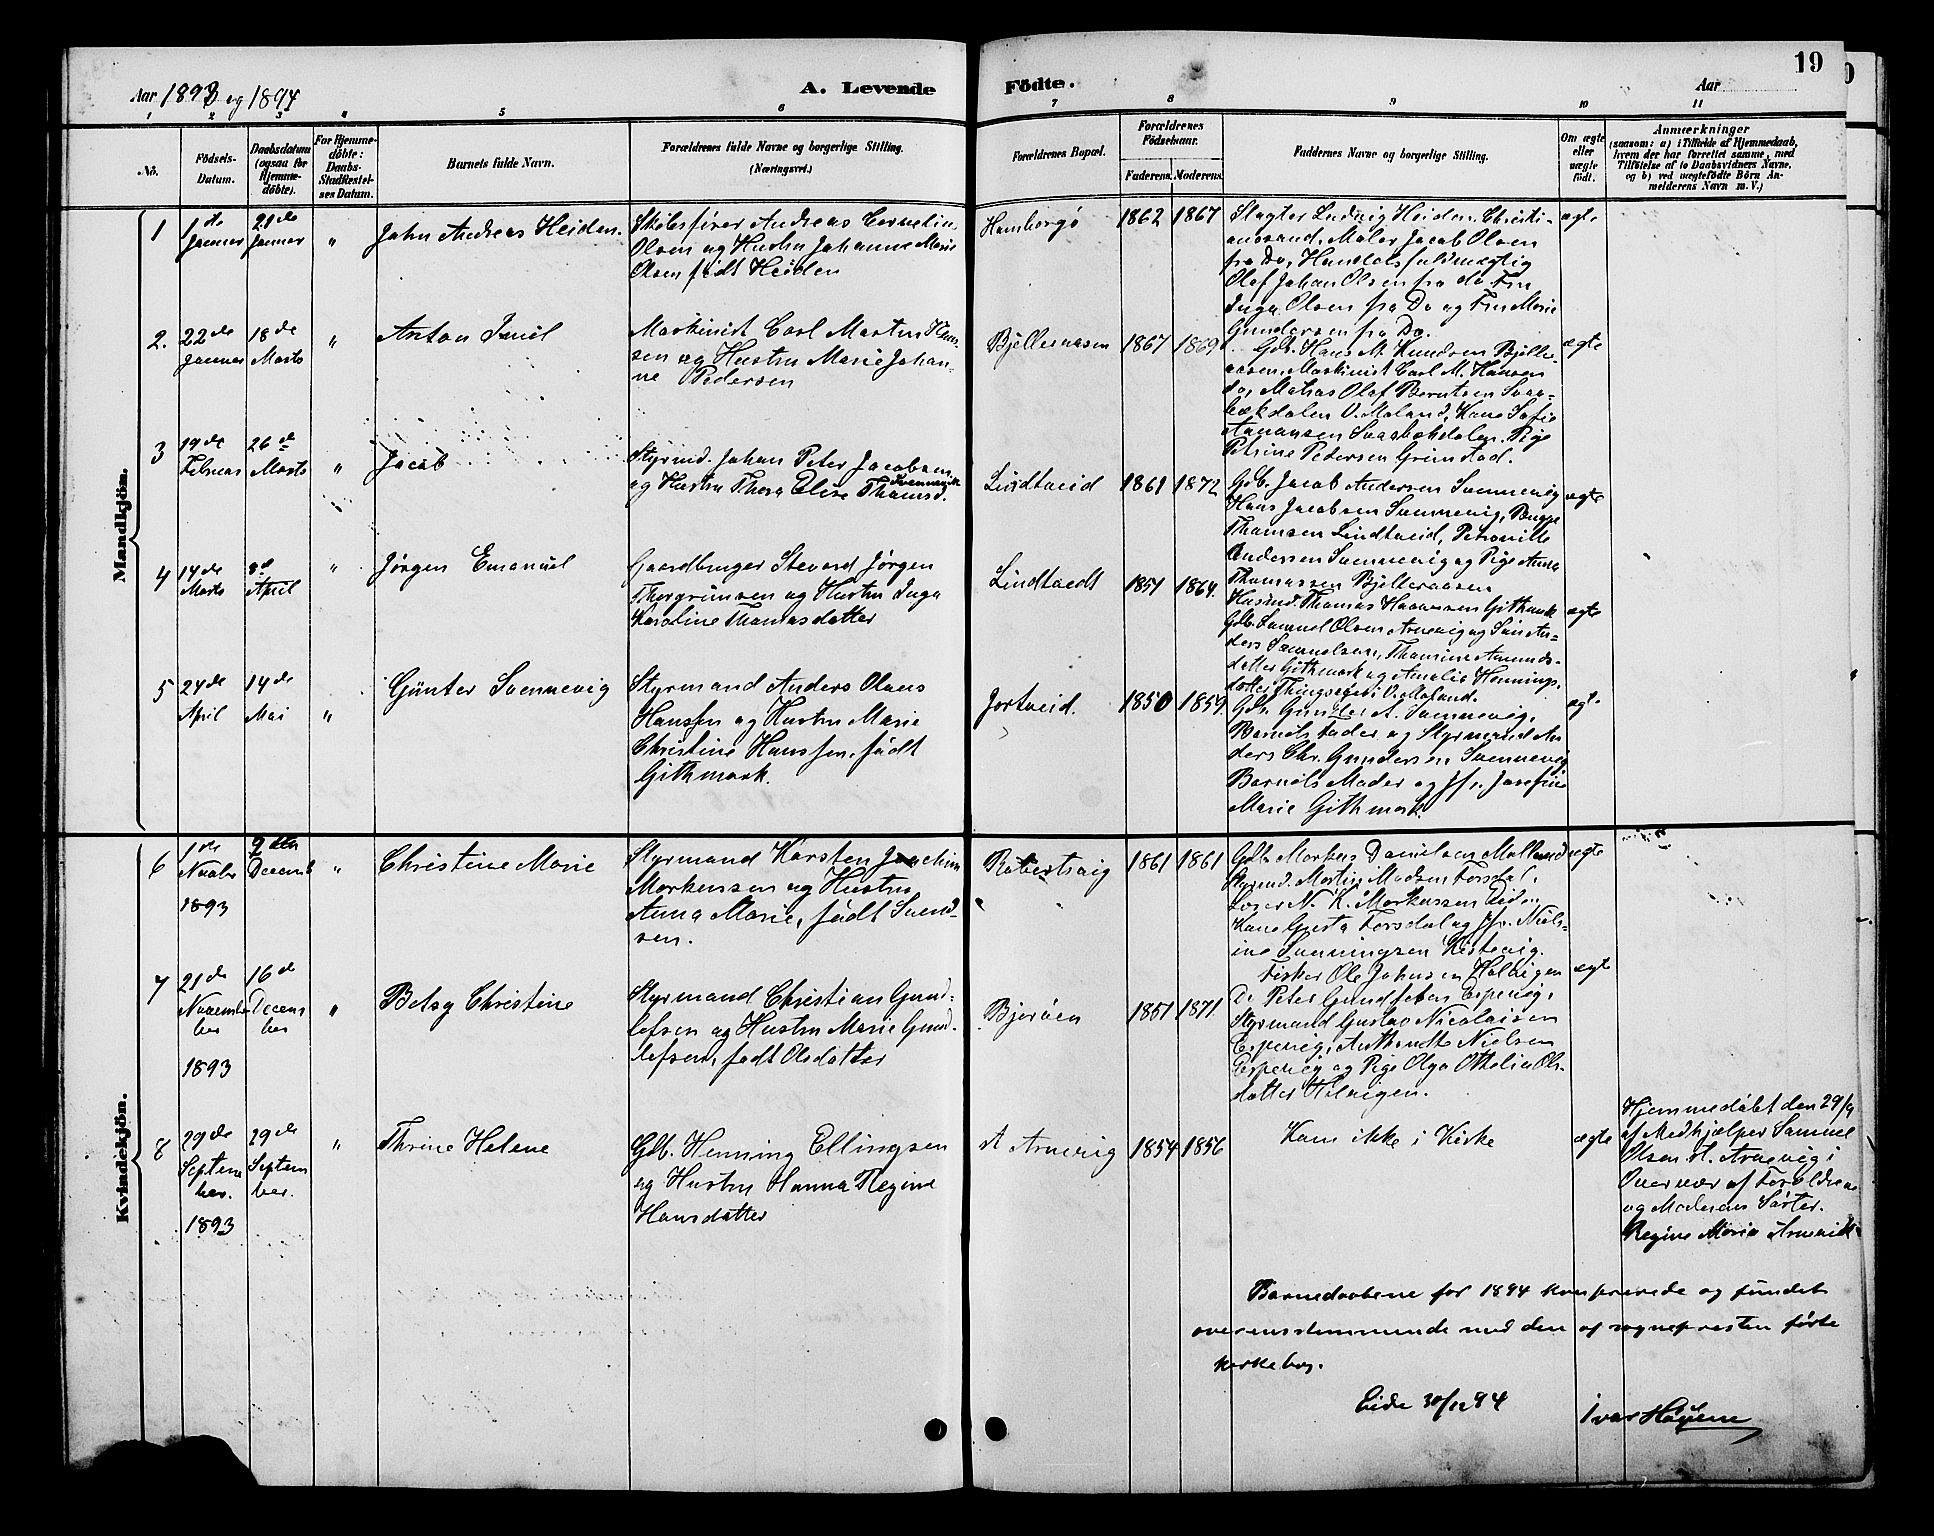 19
Aar 1893 og 1894
A. Levende
Födte.
Aar
1 2 3 4 5 6 7 8 9 10 11
No.
Födsels-
Datum.
Daabsdatum
(ogsaa for
Hjemme-
döbte).
For Hjemme-
döbte:
Daabs-
Stadfæstel-
ses Datum.
Barnets fulde Navn.
Forældrenes fulde Navne og borgerlige Stilling.
(Næringsvei.)
Forældrenes Bopæl.
Forældrenes
Födselsaar.
Faderens. Moderens.
Faddernes Navne og borgerlige Stilling.
Om ægte
eller
uægte
födt.
Anmærkninger
(saasom: a) i Tilfælde af Hjemmedaab,
hvem der har forrettet samme, med
Tilföielse af to Daabsvidners Navne,
og b) ved uægtefödte Börn An-
melderens Navn m. V.)
Mandkjön.
1
1de
Januar
21de
Januar
"
John Andreas Heiden.
Andreas Cornelius
Olsen og Hustru Johanne Marie
Olsen født Heiden
Hamborgö
1862 1867
Slagter Ludvig Heiden Christi-
ansand, Maler Jacob Olsen
fra Do, Handelsfuldmægtig
Olaf Johan Olsen fra do. Fru
Inga Olsen fra Do og Fru Marie
Gundersen fra Do.
ægte
2.
22de
Januar
18de
Marts
"
Anton Emil
Maskinist Carl Martin Han-
sen og Hustru Marie Johan-
ne Pedersen
Bjelleraasen
1867 1869
Gdb. Hans M. Knudsen Bjelle-
raasen, Maskinist Carl M. Hansen
do, Mathias Olaf Berntsen Svaa-
bækdalen V. Moland, Kone Sofie
Aanansen Svaabækdalen. Pige
Petrine Pedersen Grimstad.
ægte
3
19de
Februar
26de
Marts
"
Jacob
Styrmd. Johan Peter Jacobsen
Svennevik
og Hustru Thora Elise Thomsd.
Lindtveid
1861 1872
Gdb. Jacob Andersen Svennevig
Hans Jacobsen Svennevig,
Thomsen Lindtveid, Petronille
Andersen Svennevig og Pige Anna
Thomassen Bjelleraasen
ægte
4
14de
Marts
8de
April
"
Jørgen Emanuel
Gaardbruger Stevard Jørgen
Thorgrimsen og Hustru Inga
Karoline Thomasdatter
Lindtveidt
1851 1864.
Husmd. Thomas Haavorsen Githmark
Gdb. Samuel Olsen Arnevig og An-
ders Samuelsen, Thomine Amunds-
datter Githmark og Amalie Hennings-
datter V. Moland.
ægte
5
24de
April
14de
Mai
"
Günter Svennevig
Styrmand Anders Olaus
Hanssen og Hustru Marie
Christine Hanssen, født
Githmark.
Jortveid.
1850 1859.
Gdb. Gunder A. Svennevig,
Barnets Fader og Styrmand An-
ders Chr. Gundersen Svennevig
Barnets Moder og Jfr. Josefine
Marie Githmark
ægte
Kvindekjön.
6
1de
Novbr
1893
9de
Decemb
"
Christine Marie
Styrmand Karsten Joachim
Morkensen og Hustru
Anna Marie, født Svend-
sen.
Robertsvig
1861 1861
Gdb. Markus Danielsen Molland
Styrmd. Martin Madsen Forsdal,
N. K. Markussen Eiden,
Kone Gusta Forsdal og Jfr. Niels-
ine Svenningsen Kistevig.
ægte
7
21de
Novem-
ber
1893
16de
Decem-
ber
"
Betsy Christine
Styrmand Christian Gund-
lefsen og Hustru Marie Gund-
lefsen, født Olsdatter
Bjorøen
1851 1871.
Fisker Ole Johnsen Holvigen
Do Peter Espevig,
Styrmand Gustav Nicolaisen
Espevig, Nielsen
Espevig og Pige Olga Othelia Ols-
datter Holvigen.
ægte
8
29de
Septem-
ber.
1893
29de
Septem-
ber.
"
Thrine Helene
Gdb. Henning Ellingsen
og Hustru Hanna Regine
Hansdatter
St Arnevig
1854 1856
Kom ikke i Kirke
ægte
Hjemmedøbt den 29/9
af Medhjælper Samuel
Olsen St. Arnevig i
Overvær af Forældrene
og Moderens Søster.
Regine Marie Arnevik
Barnedaabene for 1894 konfererede og fundet
overensstemmende med den af sognepresten førte
kirkebog.
Eide 30/12 94
Ivar